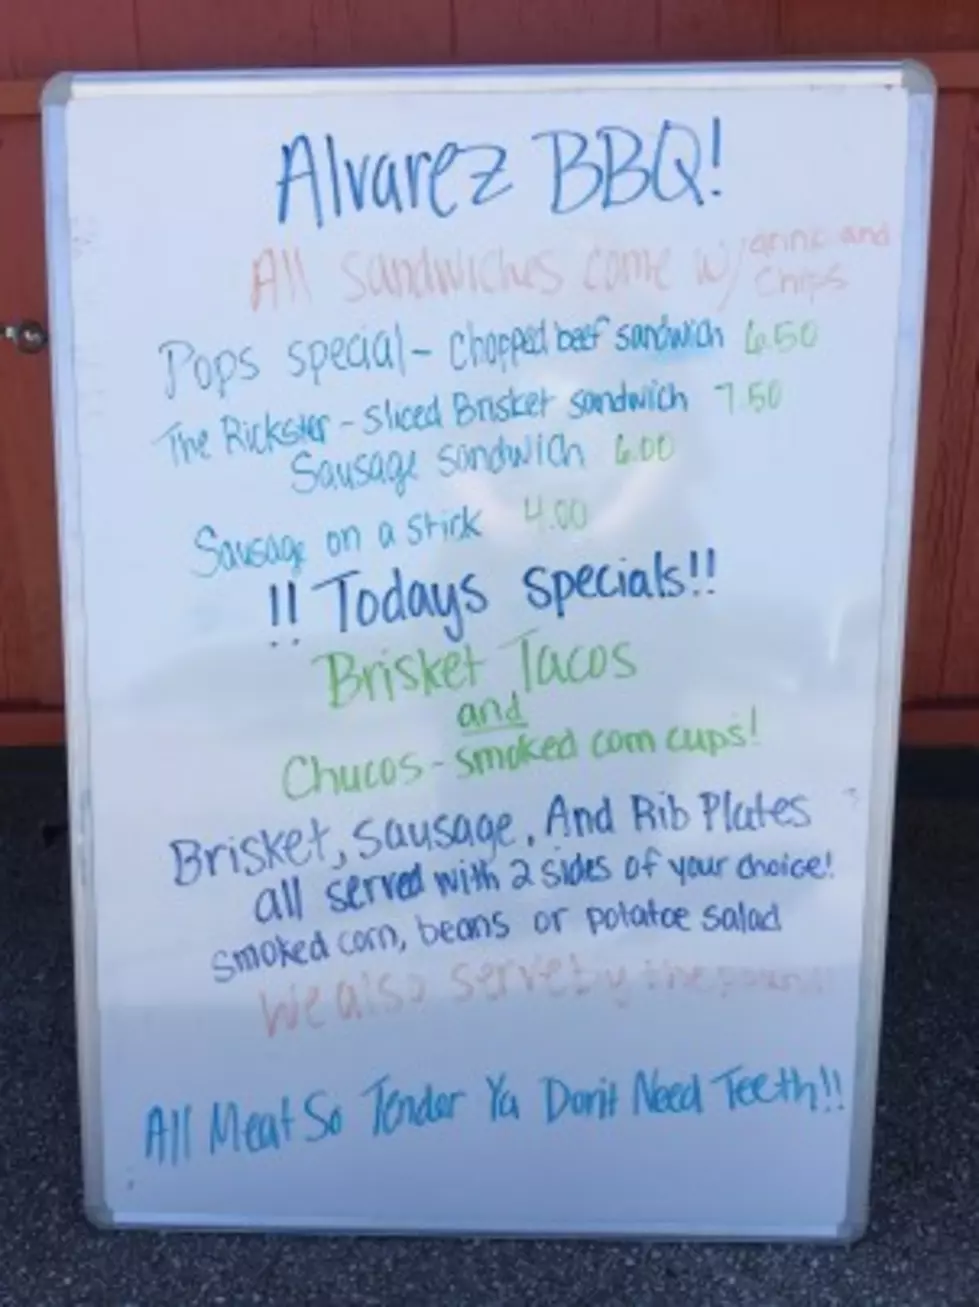 Alvarez BBQ!
All sandwiches come w/ drink and
chips
Pops special - chopped beef sandwich 6.50
The Rickster - sliced Brisket sandwich 7.50
Sausage sandwich 6.00
Sausage on a stick 4.00
!! Todays specials!!
Brisket Tacos
and
Chucos - smoked corn cups!
Brisket, sausage, And Rib Plates
all served with 2 sides of your choice!
smoked corn, beans or potatoe salad
We also serve by the pound!
All Meat So Tender Ya Don't Need Teeth!!